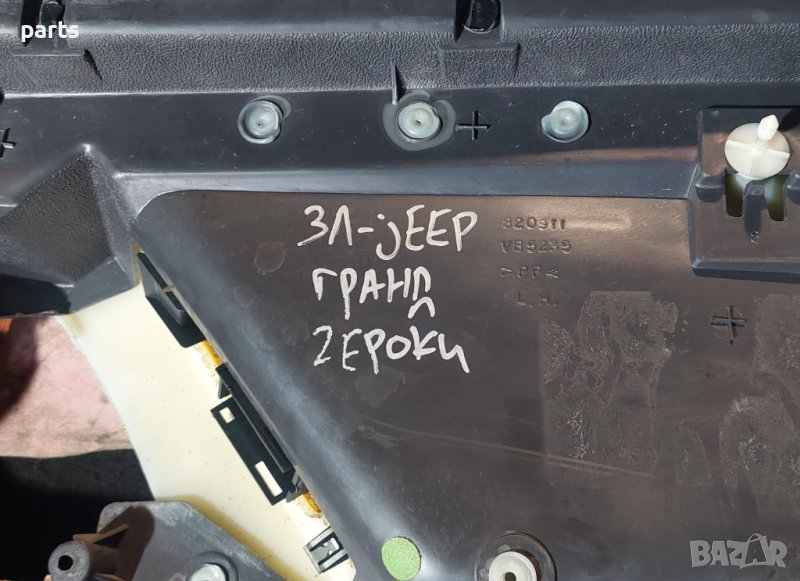 parts
ЗЛ-jEEP
ГРАНД
2 ЕРОКИ
820911
V89235
>PP<
L.H.
BAZAR